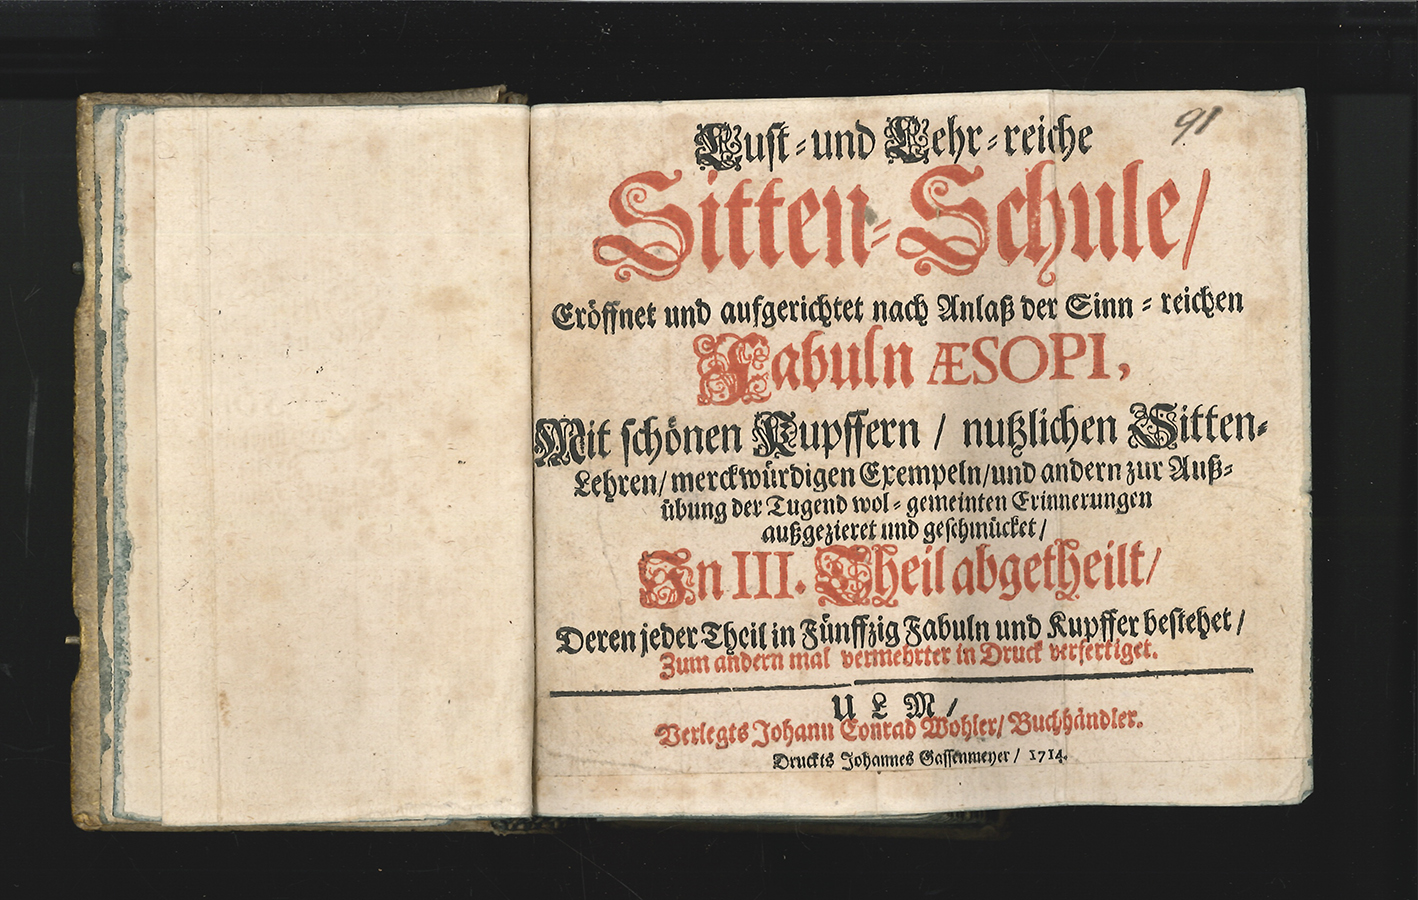 91
Lust-und Lehr-reiche
Sitten-Schule/
Eröffnet und aufgerichtet nach Anlaß der Sinn-reichen
Fabuln ÆSOPI,
Mit schönen Kupffern / nutzlichen Sitten-
Lehren/merckwürdigen Exempeln/und andern zur Auß-
übung der Tugend wol-gemeinten Erinnerungen
außgezieret und geschmücket/
In III. Theil abgetheilt/
Deren jeder Theil in Fünffzig Fabuln und Kupffer bestehet/
Zum andern mal vermehrter in Druck verfertiget.
ULM/
Verlegts Johann Conrad Wohler/ Buchhändler.
Druckts Johannes Gassenmeyer/ 1714.